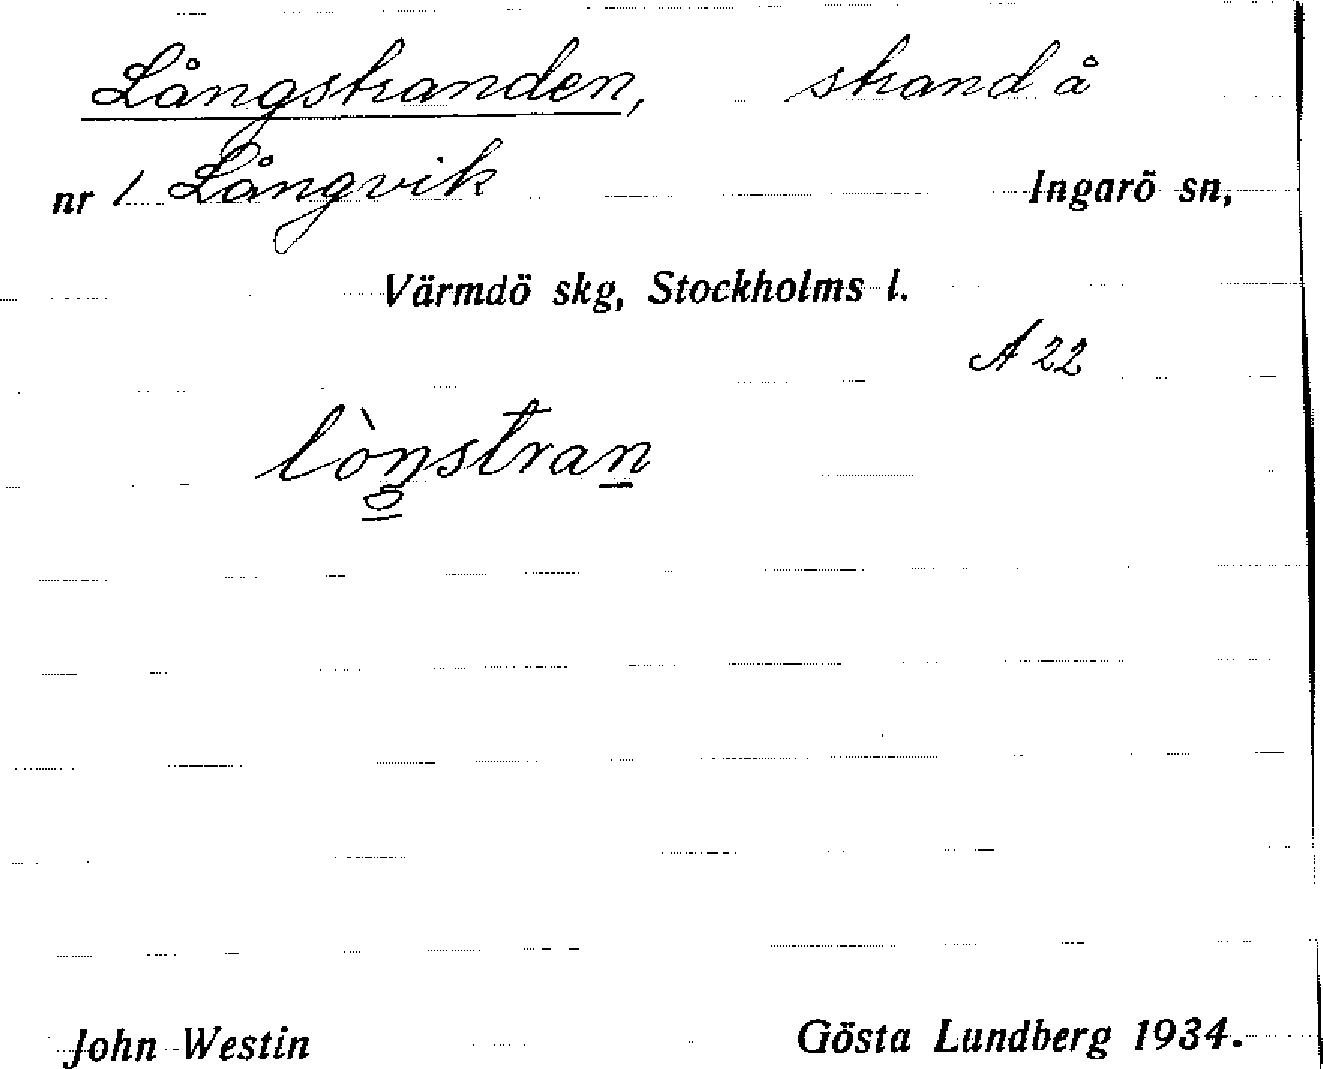 Långstranden, strand å
nr 1 Långvik Ingarö sn,
Värmdö skg, Stockholms l.
A 22
lòŋstran
John Westin Gösta Lundberg 1934.